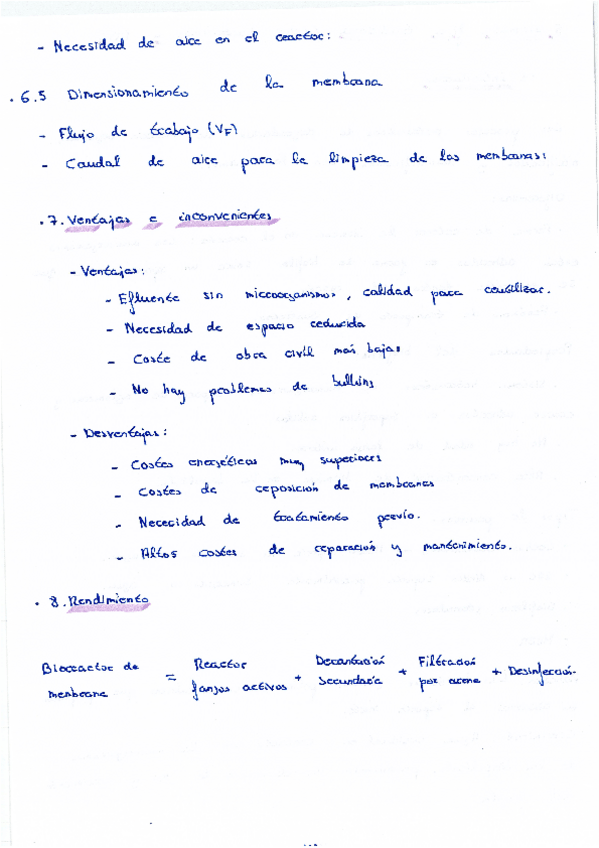 - Necesidad de aire en el reactor:
. 6.5 Dimensionamiento de la membrana
- Flujo de trabajo (VF)
- Caudal de aire para la limpieza de las membranas:
. 7. Ventajas e inconvenientes
- Ventajas:
- Efluente sin microorganismos, calidad para reutilizar.
- Necesidad de espacio reducida
- Coste de obra civil más bajas
- No hay problemas de bulking
- Desventajas:
- Costes energéticos muy superiores
- Costes de reposición de membranas
- Nececidad de tratamiento previo.
- Altos costes de reparación y mantenimiento.
. 8. Rendimiento
Bioreactor de membrana = Reactor fangos activos + Decantación secundaria + Filtración por arena + Desinfección.